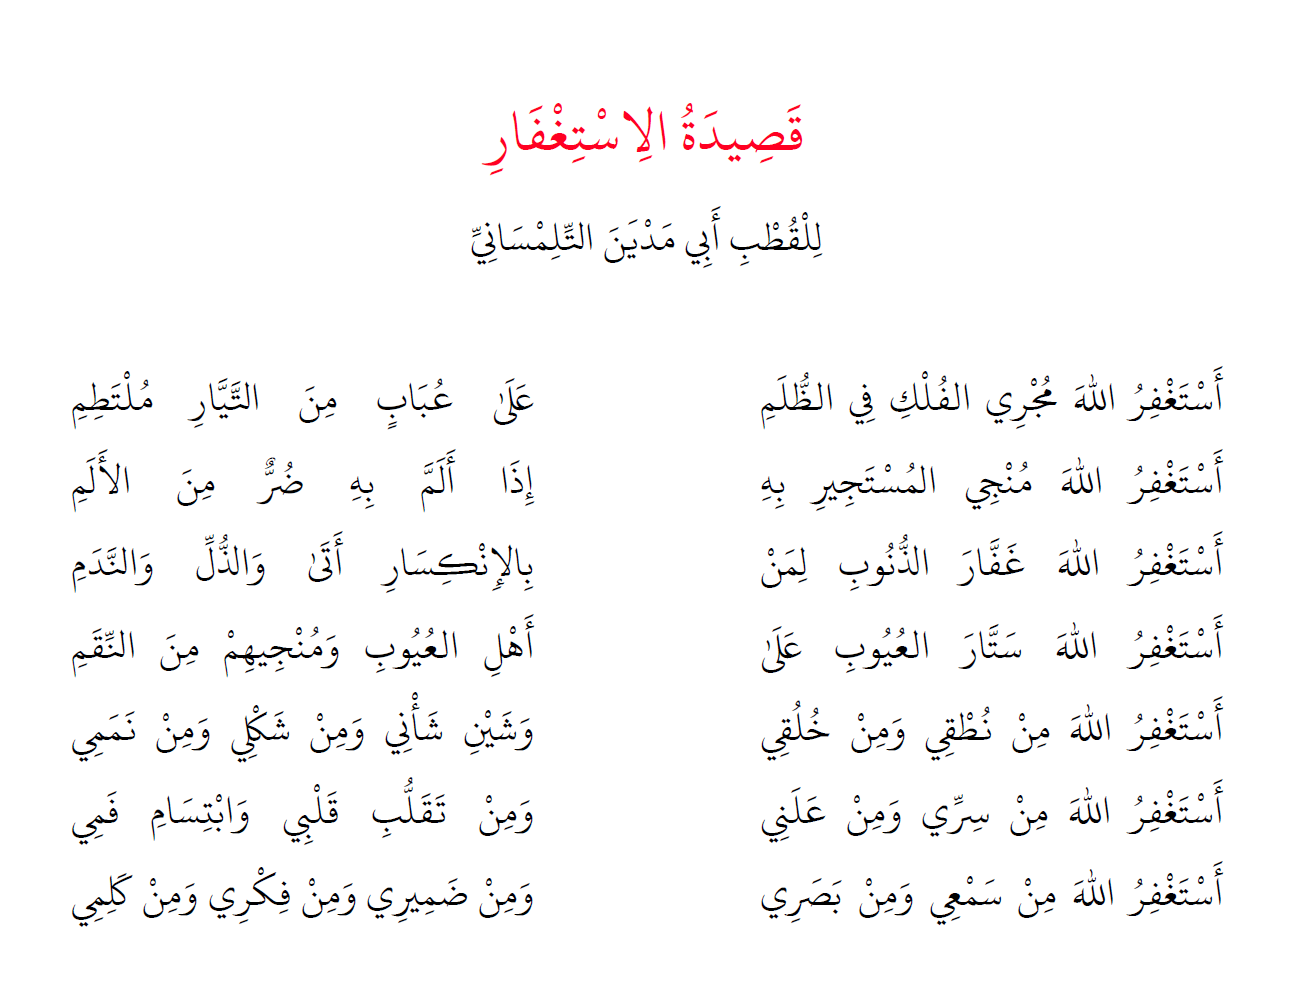 قَصِيدَةُ الِاسْتِغْفَارِ
لِلْقُطْبِ أَبِي مَدْيَنَ التِّلِمْسَانِيِّ
أَسْتَغْفِرُ اللهَ مُجْرِي الفُلْكِ فِي الظُّلَمِ عَلَىٰ عُبَابٍ مِنَ التَّيَّارِ مُلْتَطِمِ
أَسْتَغْفِرُ اللهَ مُنْجِي المُسْتَجِيرِ بِهِ إِذَا أَلَمَّ بِهِ ضُرٌّ مِنَ الأَلَمِ
أَسْتَغْفِرُ اللهَ غَفَّارَ الذُّنُوبِ لِمَنْ بِالإِنْكِسَارِ أَتَىٰ وَالذُّلِّ وَالنَّدَمِ
أَسْتَغْفِرُ اللهَ سَتَّارَ العُيُوبِ عَلَىٰ أَهْلِ العُيُوبِ وَمُنْجِيهِمْ مِنَ النِّقَمِ
أَسْتَغْفِرُ اللهَ مِنْ نُطْقِي وَمِنْ خُلُقِي وَشَيْنِ شَأْنِي وَمِنْ شَكْلِي وَمِنْ نَمَمِي
أَسْتَغْفِرُ اللهَ مِنْ سِرِّي وَمِنْ عَلَنِي وَمِنْ تَقَلُّبِ قَلْبِي وَابْتِسَامِ فَمِي
أَسْتَغْفِرُ اللهَ مِنْ سَمْعِي وَمِنْ بَصَرِي وَمِنْ ضَمِيرِي وَمِنْ فِكْرِي وَمِنْ كَلِمِي